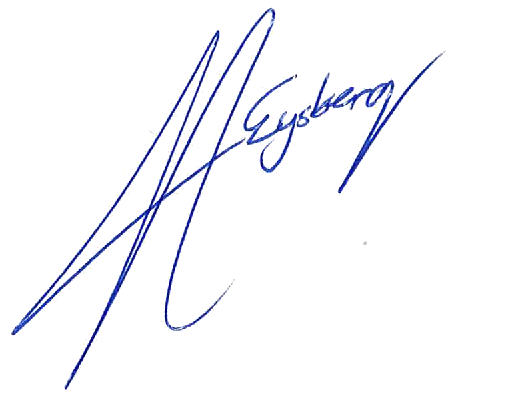 A Eysberg